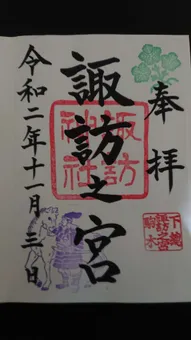 奉拝
諏訪之宮
諏訪
神社
令和二年十一月三日
下総
諏訪之宮
駒木